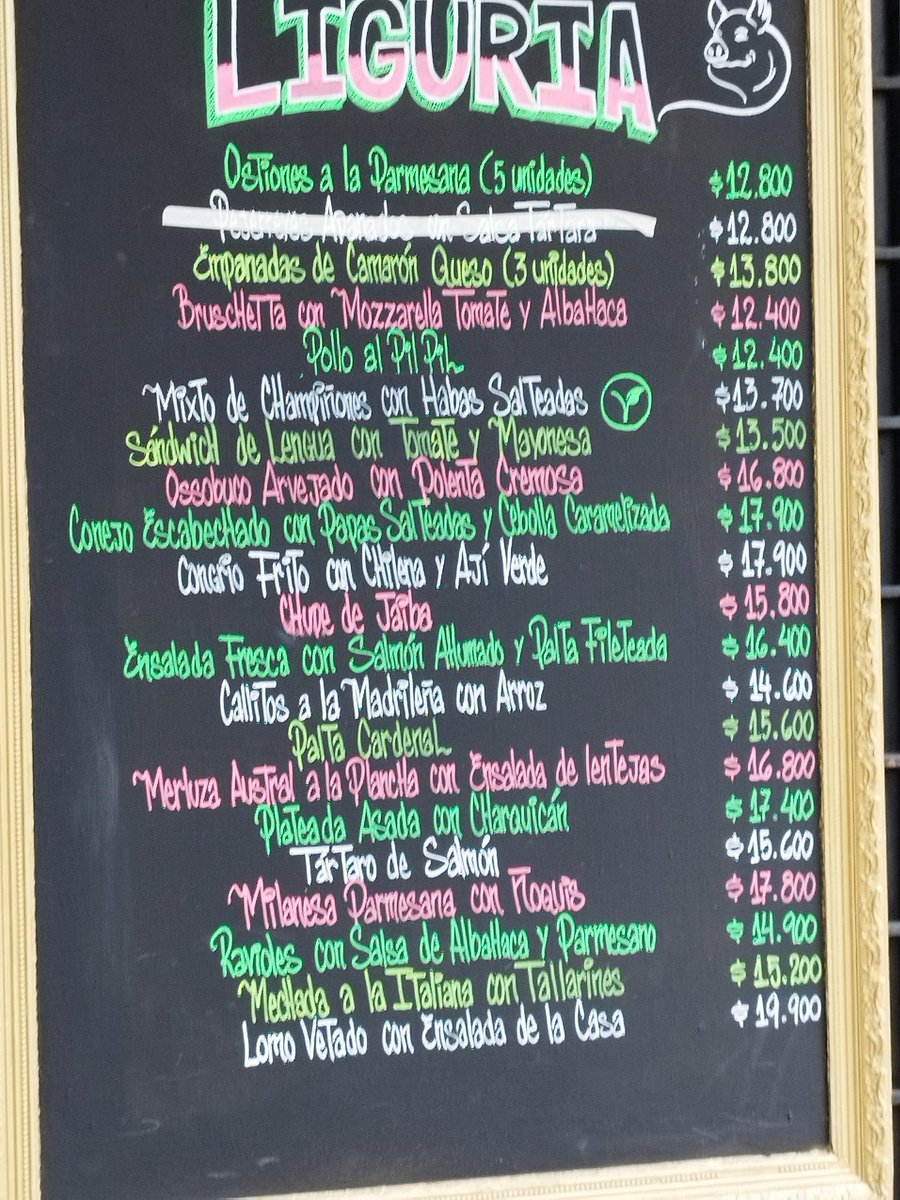 LIGURIA
Ostiones a la Parmesana (5 unidades) $12.800
Pejerreyes Apanados con Salsa Tártara $12.800
Empanadas de Camarón Queso (3 unidades) $13.800
Bruschetta con Mozzarella Tomate y Albahaca $12.400
Pollo al Pil Pil $12.400
Mixto de Champiñones con Habas Salteadas $13.700
Sándwich de Lengua con Tomate y Mayonesa $13.500
Ossobuco Arvejado con Polenta Cremosa $16.800
Conejo Escabechado con Papas Salteadas y Cebolla Caramelizada $17.900
Congrio Frito con Chilena y Ají Verde $17.900
Chupe de Jaiba $15.800
Ensalada Fresca con Salmón Ahumado y Palta Fileteada $16.400
Callitos a la Madrileña con Arroz $14.600
Palta Cardenal $15.600
Merluza Austral a la Plancha con Ensalada de lentejas $16.800
Plateada Asada con Charquicán $17.400
Tártaro de Salmón $15.600
Milanesa Parmesana con Ñoquis $17.800
Ravioles con Salsa de Albahaca y Parmesano $14.900
Mechada a la Italiana con Tallarines $15.200
Lomo Vetado con Ensalada de la Casa $19.900